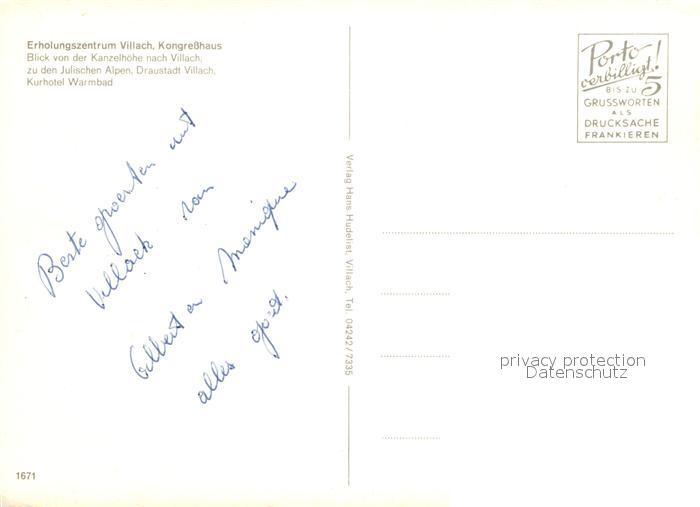 Erholungszentrum Villach, Kongreßhaus
Blick von der Kanzelhöhe nach Villach,
zu den Julischen Alpen, Draustadt Villach,
Kurhotel Warmbad
Porto
verbilligt!
BIS ZU 5
GRUSSWORTEN
ALS
DRUCKSACHE
FRANKIEREN
Beste groeten uit
Villach van
Gilbert en Monique
alles goed.
Verlag Hans Hudelist, Villach, Tel. 04242/7335
privacy protection
Datenschutz
1671